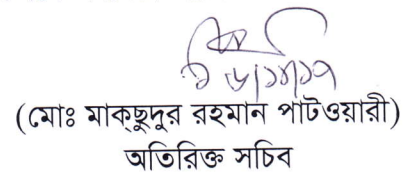 (মোঃ মাক্ছুদুর রহমান পাটওয়ারী)
অতিরিক্ত সচিব